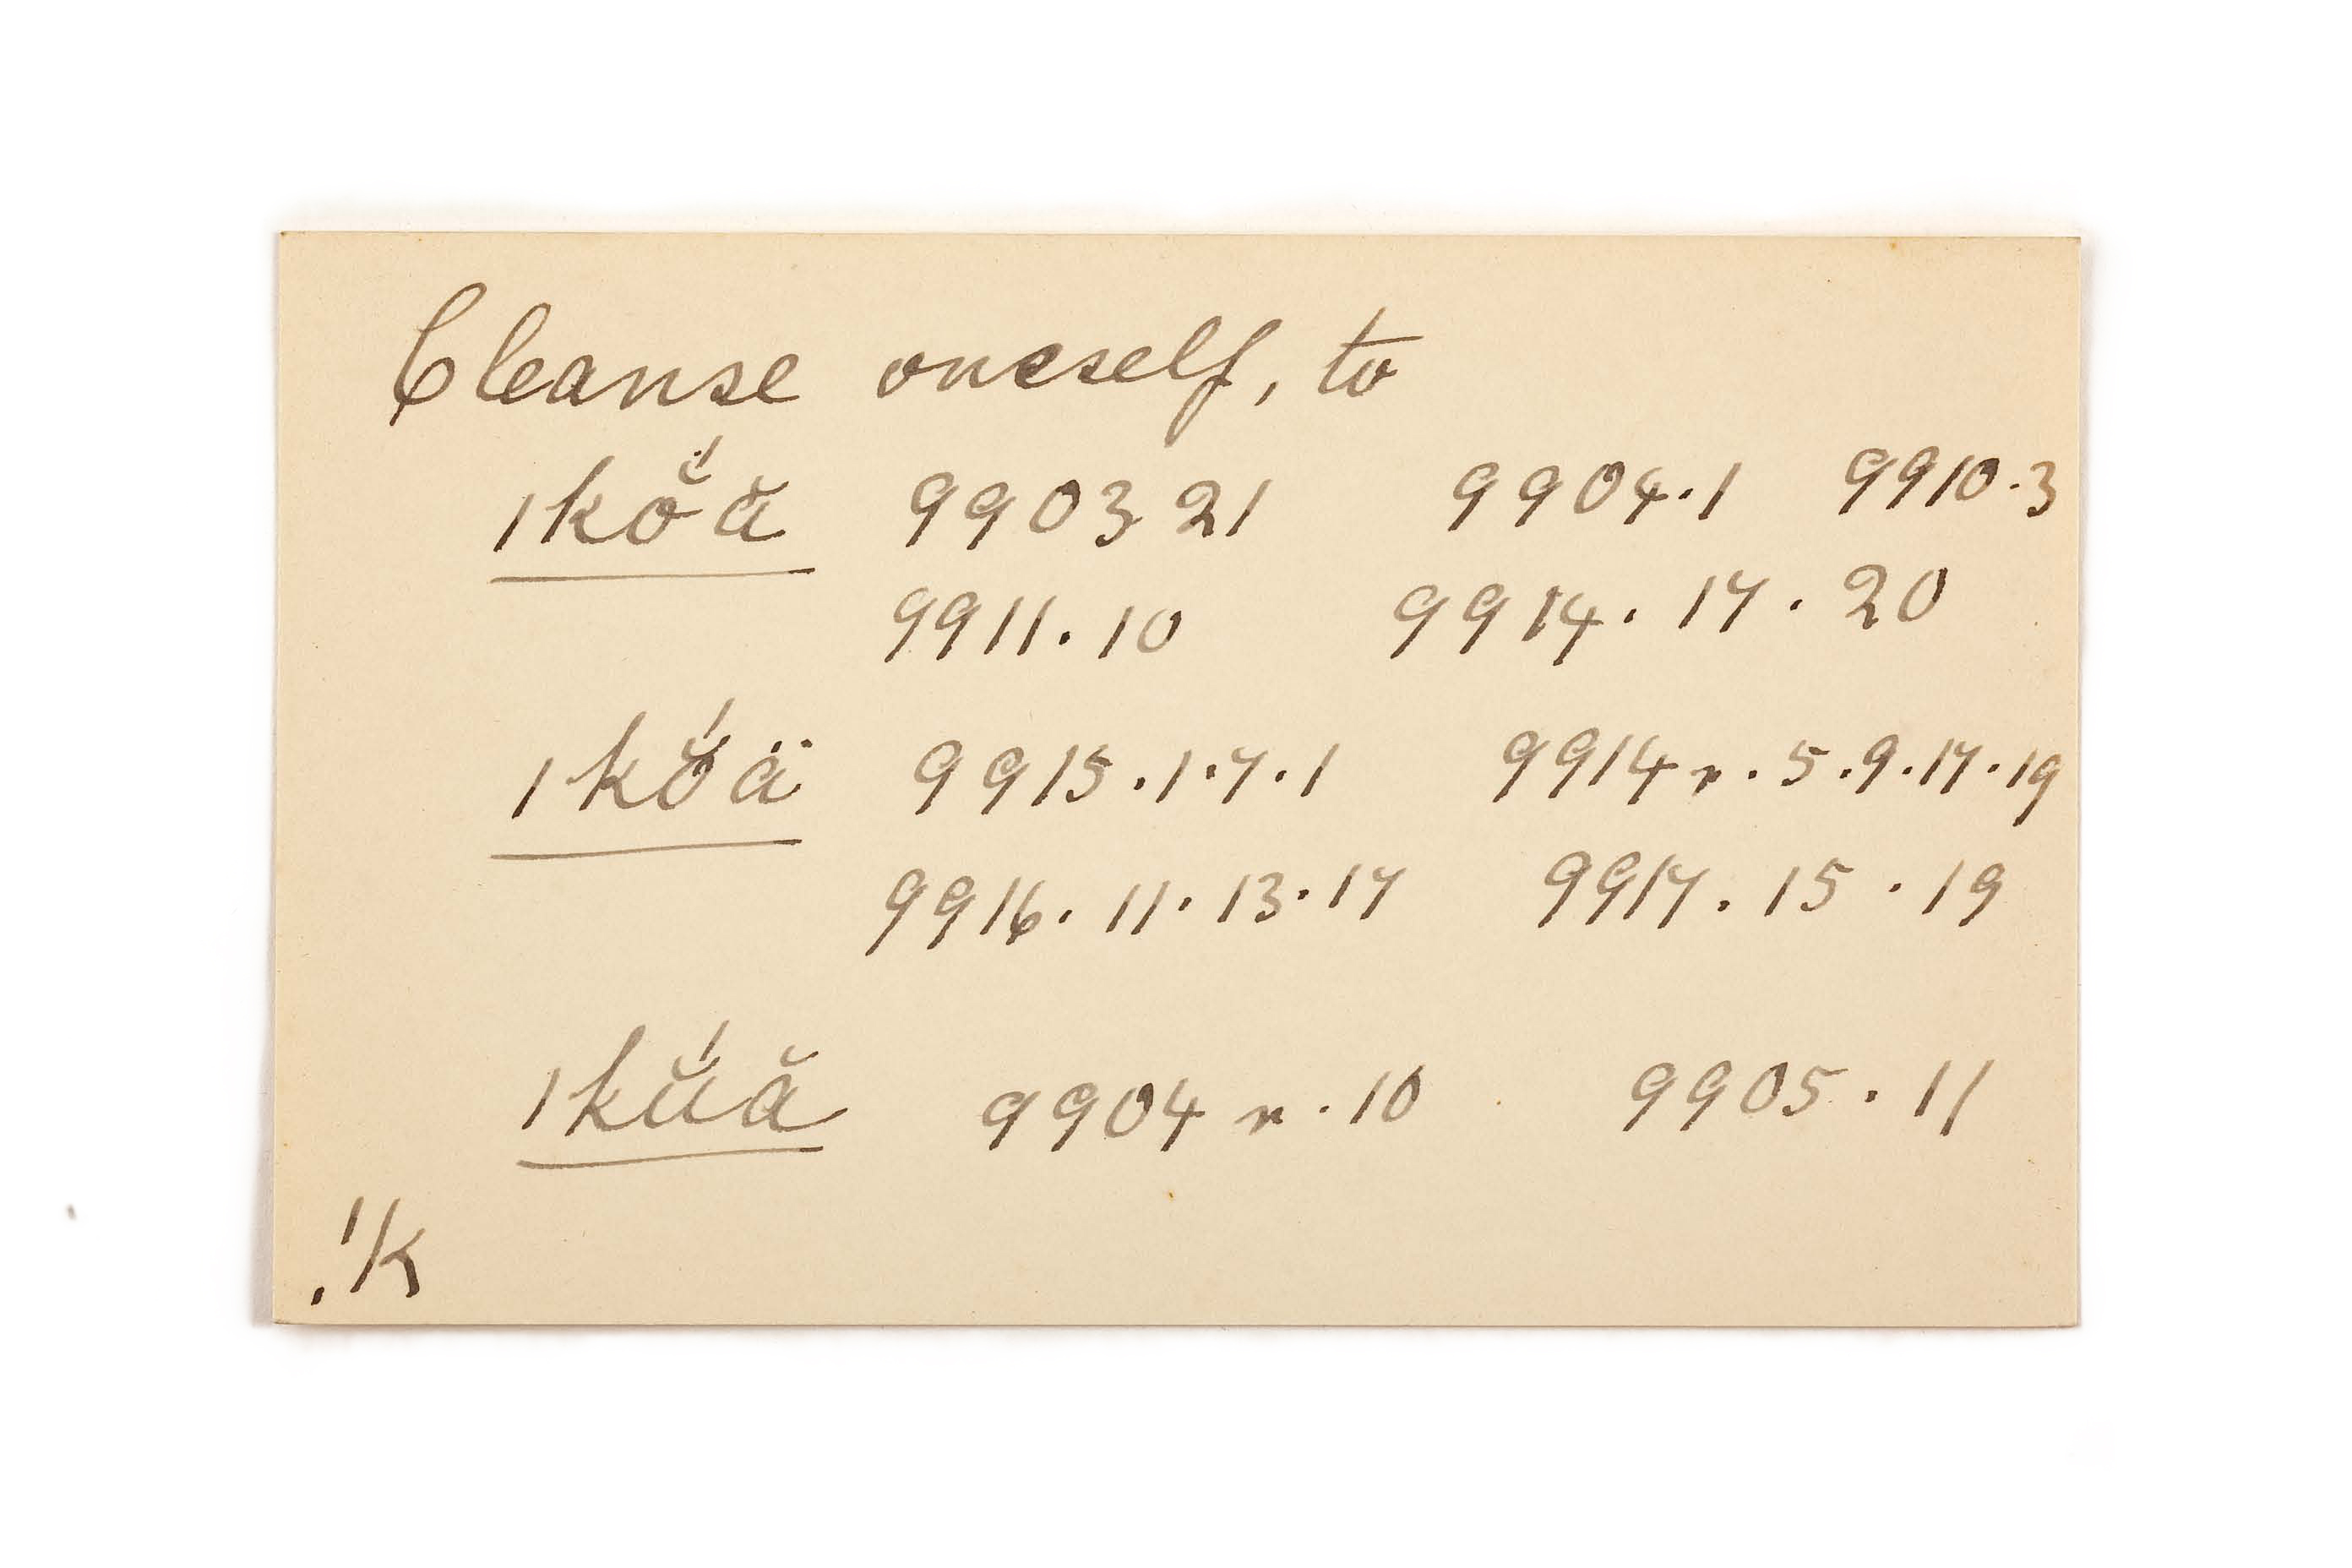 Cleanse oneself, to
ǀkŏ́ă 9903 21 9904.1 9910.3
9911.10 9914.17.20
ǀkŏ́ä 9915.1.7.1 9914 r.5.9.17.19
9916.11.13.17 9917.15.19
ǀkŭ́ă 9904 r.10 9905.11
ǃk